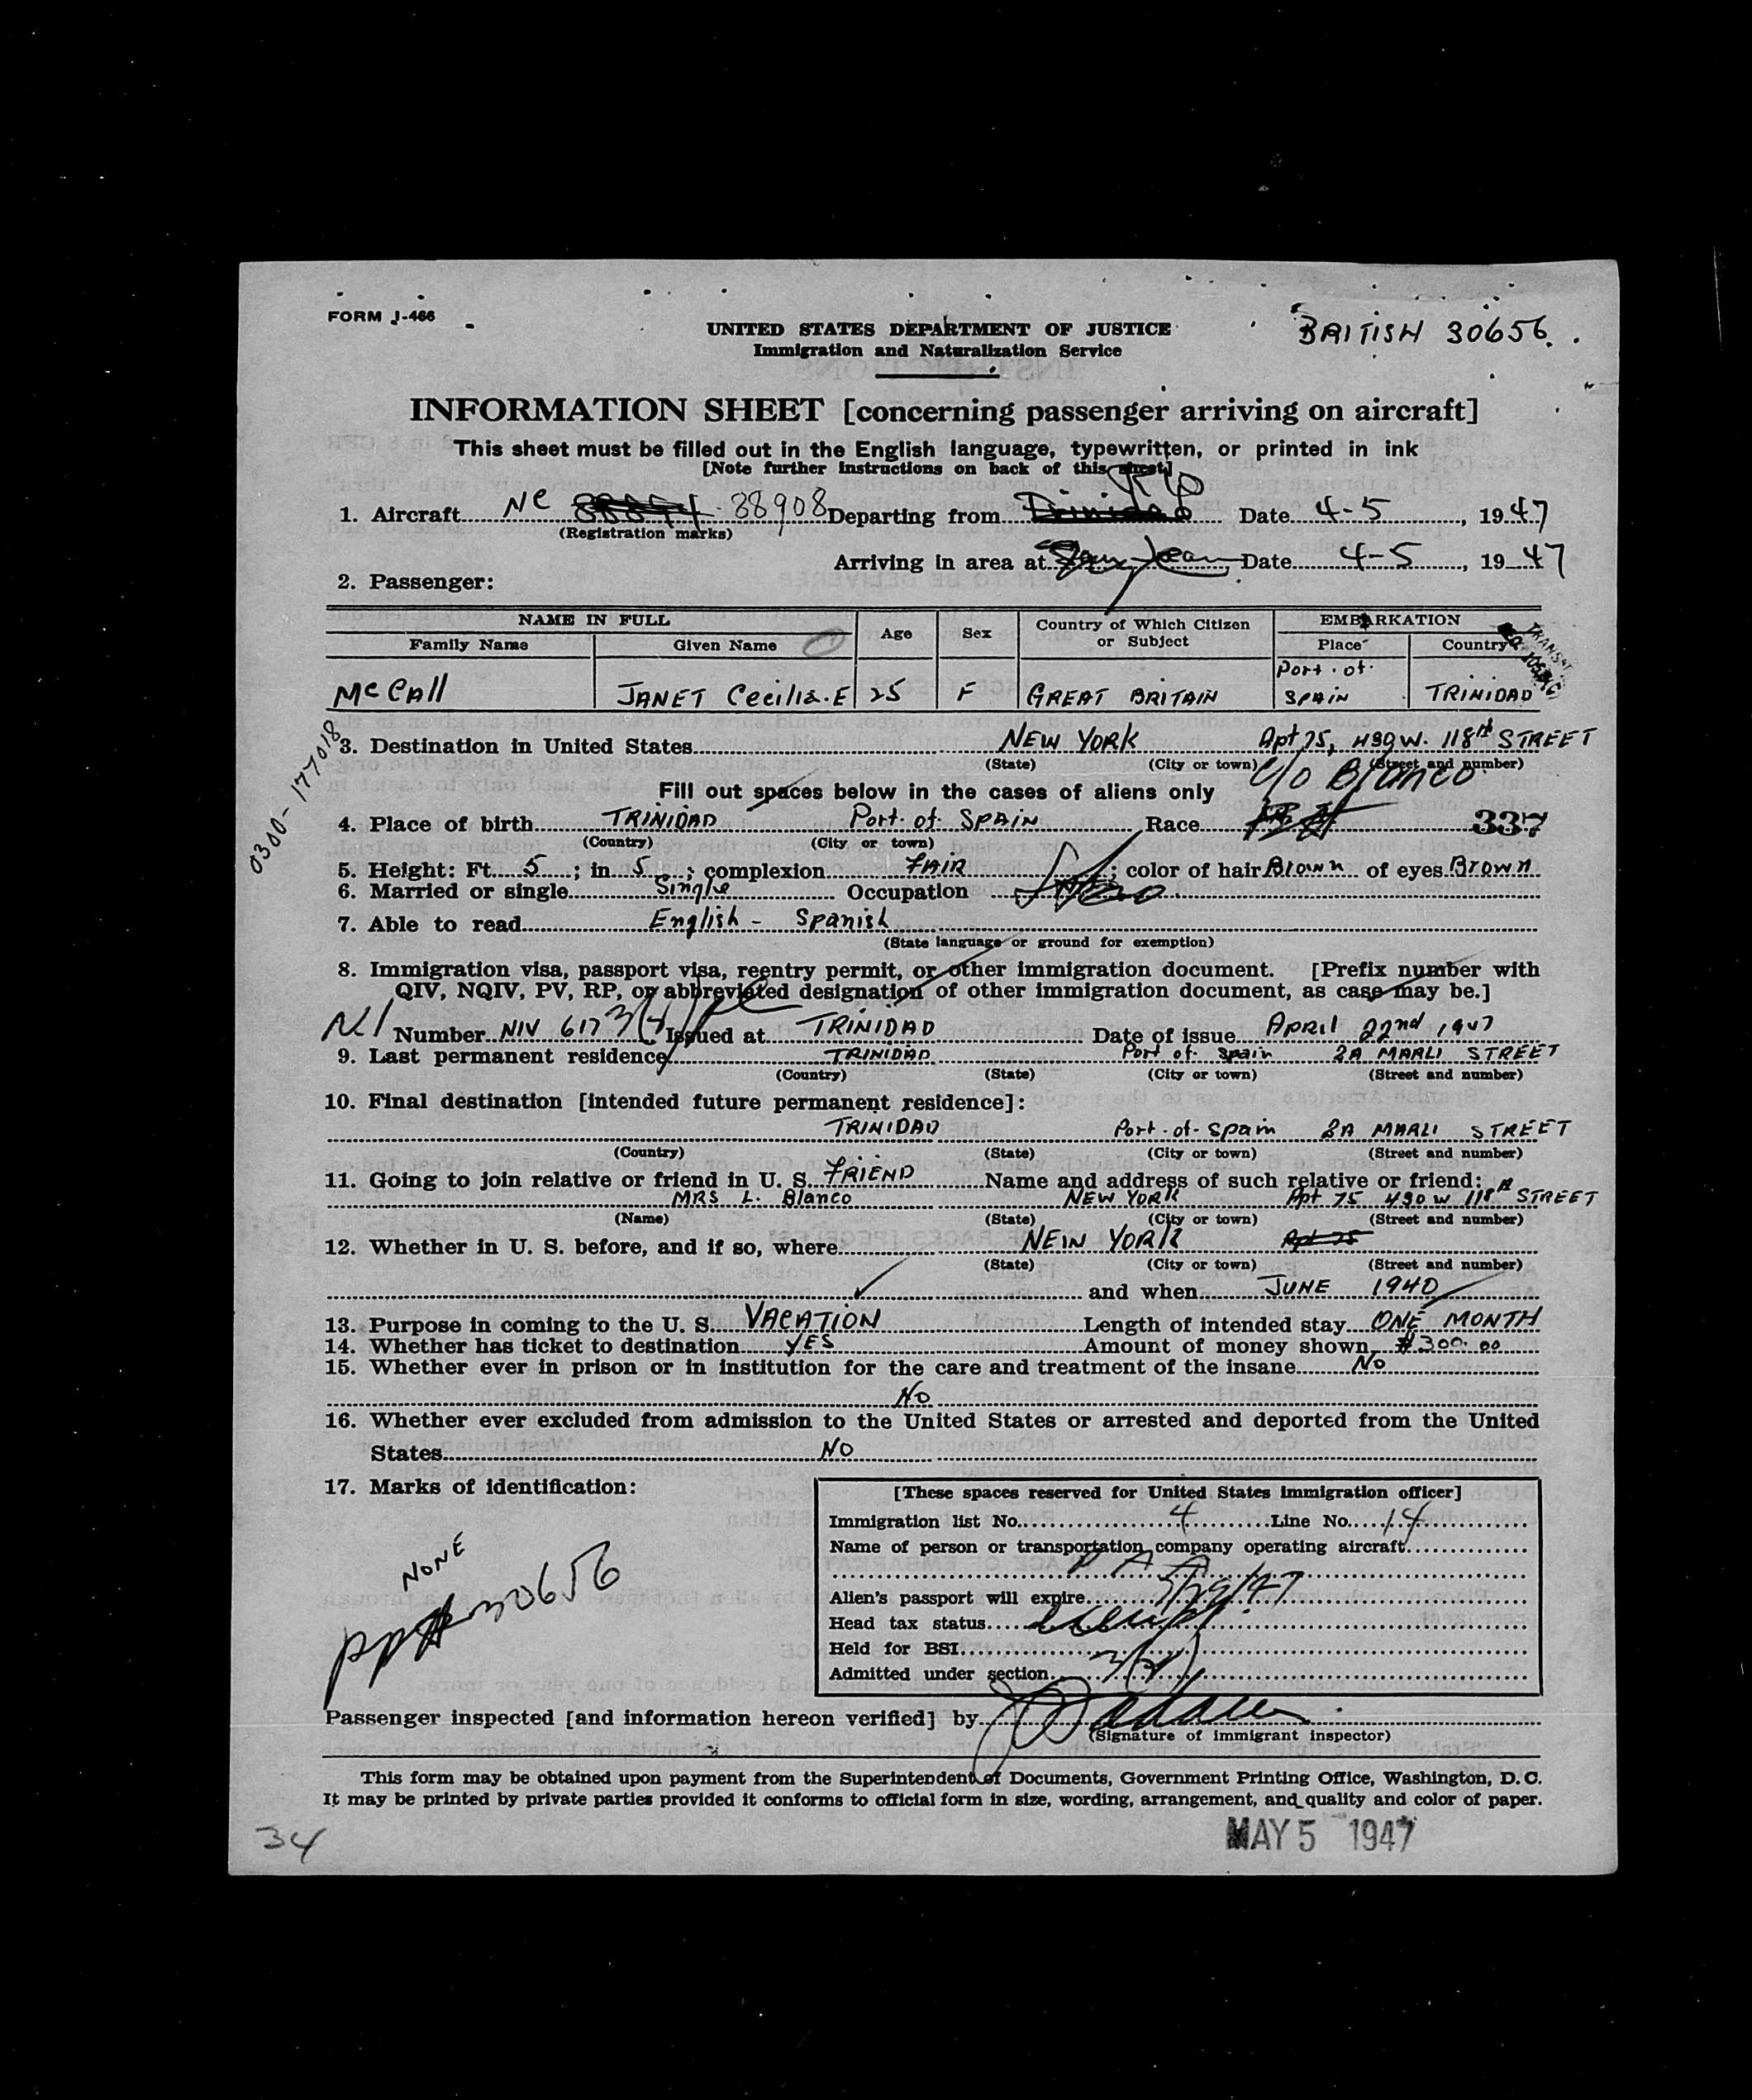 FORM I-466
UNITED STATES DEPARTMENT OF JUSTICE
Immigration and Naturalization Service
BRITISH 30656.
INFORMATION SHEET [concerning passenger arriving on aircraft]
This sheet must be filled out in the English language, typewritten, or printed in ink
[Note further instructions on back of this sheet]
1. Aircraft NC 88908 Departing from Trinidad Date 4-5, 1947
(Registration marks)
Arriving in area at San Juan Date 4-5, 1947
2. Passenger:
NAME IN FULL Age Sex Country of Which Citizen or Subject EMBARKATION
Family Name Given Name Place Country
TRANSIT
McCall JANET Cecilia.E 25 F GREAT BRITAIN Port.of. SPAIN TRINIDAD
0300-177018
3. Destination in United States NEW YORK Apt 75, 430 W. 118th STREET
(State) (City or town) (Street and number)
c/o Blanco
Fill out spaces below in the cases of aliens only
4. Place of birth TRINIDAD Port.of.SPAIN Race 337
(Country) (City or town)
5. Height: Ft. 5; in. 5; complexion FAIR; color of hair Brown of eyes Brown
6. Married or single Single Occupation
7. Able to read English - Spanish
(State language or ground for exemption)
8. Immigration visa, passport visa, reentry permit, or other immigration document. [Prefix number with
QIV, NQIV, PV, RP, or abbreviated designation of other immigration document, as case may be.]
Number NIV 617 Issued at TRINIDAD Date of issue APRIL 22nd 1947
9. Last permanent residence TRINIDAD Port of. Spain 2A MARLI STREET
(Country) (State) (City or town) (Street and number)
10. Final destination [intended future permanent residence]:
TRINIDAD Port.of.Spain 2A MARLI STREET
(Country) (State) (City or town) (Street and number)
11. Going to join relative or friend in U. S. FRIEND Name and address of such relative or friend:
MRS L. Blanco NEW YORK Apt 75 430 W 118th STREET
(Name) (State) (City or town) (Street and number)
12. Whether in U. S. before, and if so, where NEW YORK Apt 75
(State) (City or town) (Street and number)
and when JUNE 1940
13. Purpose in coming to the U. S. VACATION Length of intended stay ONE MONTH
14. Whether has ticket to destination YES Amount of money shown $300.00
15. Whether ever in prison or in institution for the care and treatment of the insane No
No
16. Whether ever excluded from admission to the United States or arrested and deported from the United
States NO
17. Marks of identification:
NONE
pp# 30656
[These spaces reserved for United States immigration officer]
Immigration list No. 4 Line No. 14
Name of person or transportation company operating aircraft
P A A
Alien's passport will expire 3/29/47
Head tax status
Held for BSI
Admitted under section 3(2)
Passenger inspected [and information hereon verified] by
(Signature of immigrant inspector)
This form may be obtained upon payment from the Superintendent of Documents, Government Printing Office, Washington, D. C.
It may be printed by private parties provided it conforms to official form in size, wording, arrangement, and quality and color of paper.
34
MAY 5 1947